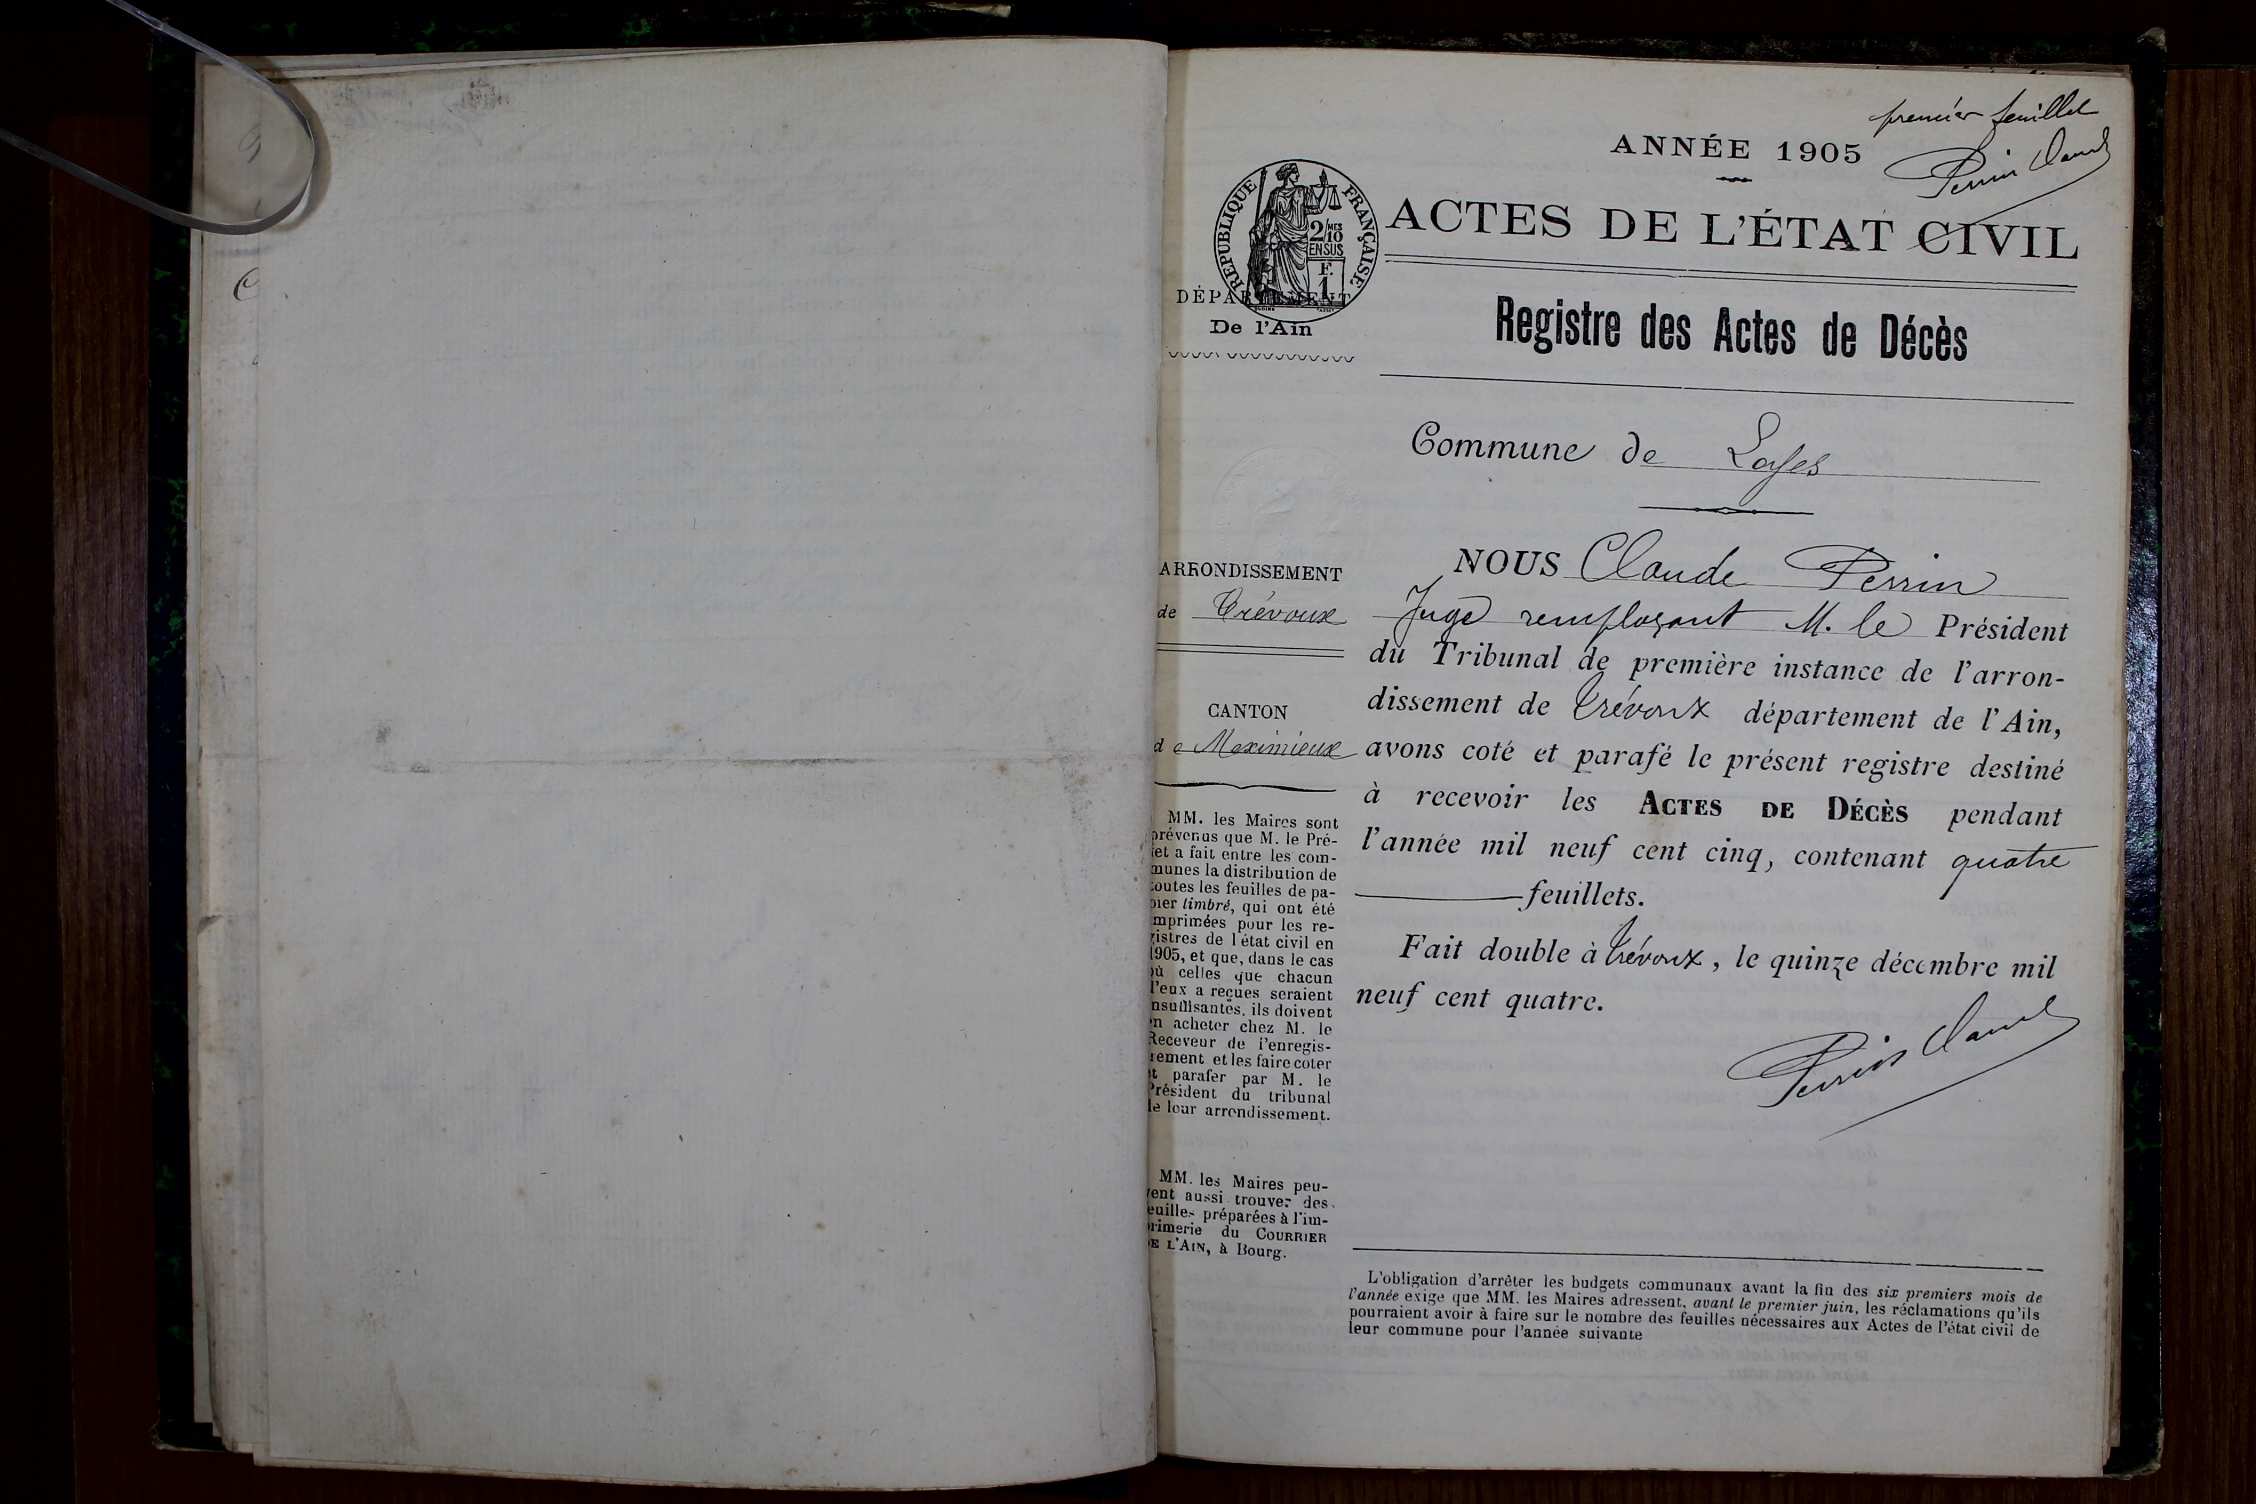 premier feuillet
Perrin Claude
ANNÉE 1905
ACTES DE L'ÉTAT CIVIL
RÉPUBLIQUE FRANÇAISE
2/10 MES
EN SUS
F.
1
DÉPARTEMENT
De l'Ain
Registre des Actes de Décès
Commune de Loyes
ARRONDISSEMENT
de Trévoux
CANTON
de Meximieux
MM. les Maires sont
prévenus que M. le Pré-
fet a fait entre les com-
munes la distribution de
toutes les feuilles de pa-
pier timbré, qui ont été
imprimées pour les re-
gistres de l'état civil en
1905, et que, dans le cas
où celles que chacun
d'eux a reçues seraient
insuffisantes, ils doivent
en acheter chez M. le
Receveur de l'enregis-
trement et les faire coter
et parafer par M. le
Président du tribunal
de leur arrondissement.
MM. les Maires peu-
vent aussi trouver des
feuilles préparées à l'im-
primerie du COURRIER
DE L'AIN, à Bourg.
NOUS Claude Perrin
Juge remplaçant M. le Président
du Tribunal de première instance de l'arron-
dissement de Trévoux département de l'Ain,
avons coté et parafé le présent registre destiné
à recevoir les ACTES DE DÉCÈS pendant
l'année mil neuf cent cinq, contenant quatre
feuillets.
Fait double à Trévoux, le quinze décembre mil
neuf cent quatre.
Perrin Claude
L'obligation d'arrêter les budgets communaux avant la fin des six premiers mois de
l'année exige que MM. les Maires adressent, avant le premier juin, les réclamations qu'ils
pourraient avoir à faire sur le nombre des feuilles nécessaires aux Actes de l'état civil de
leur commune pour l'année suivante